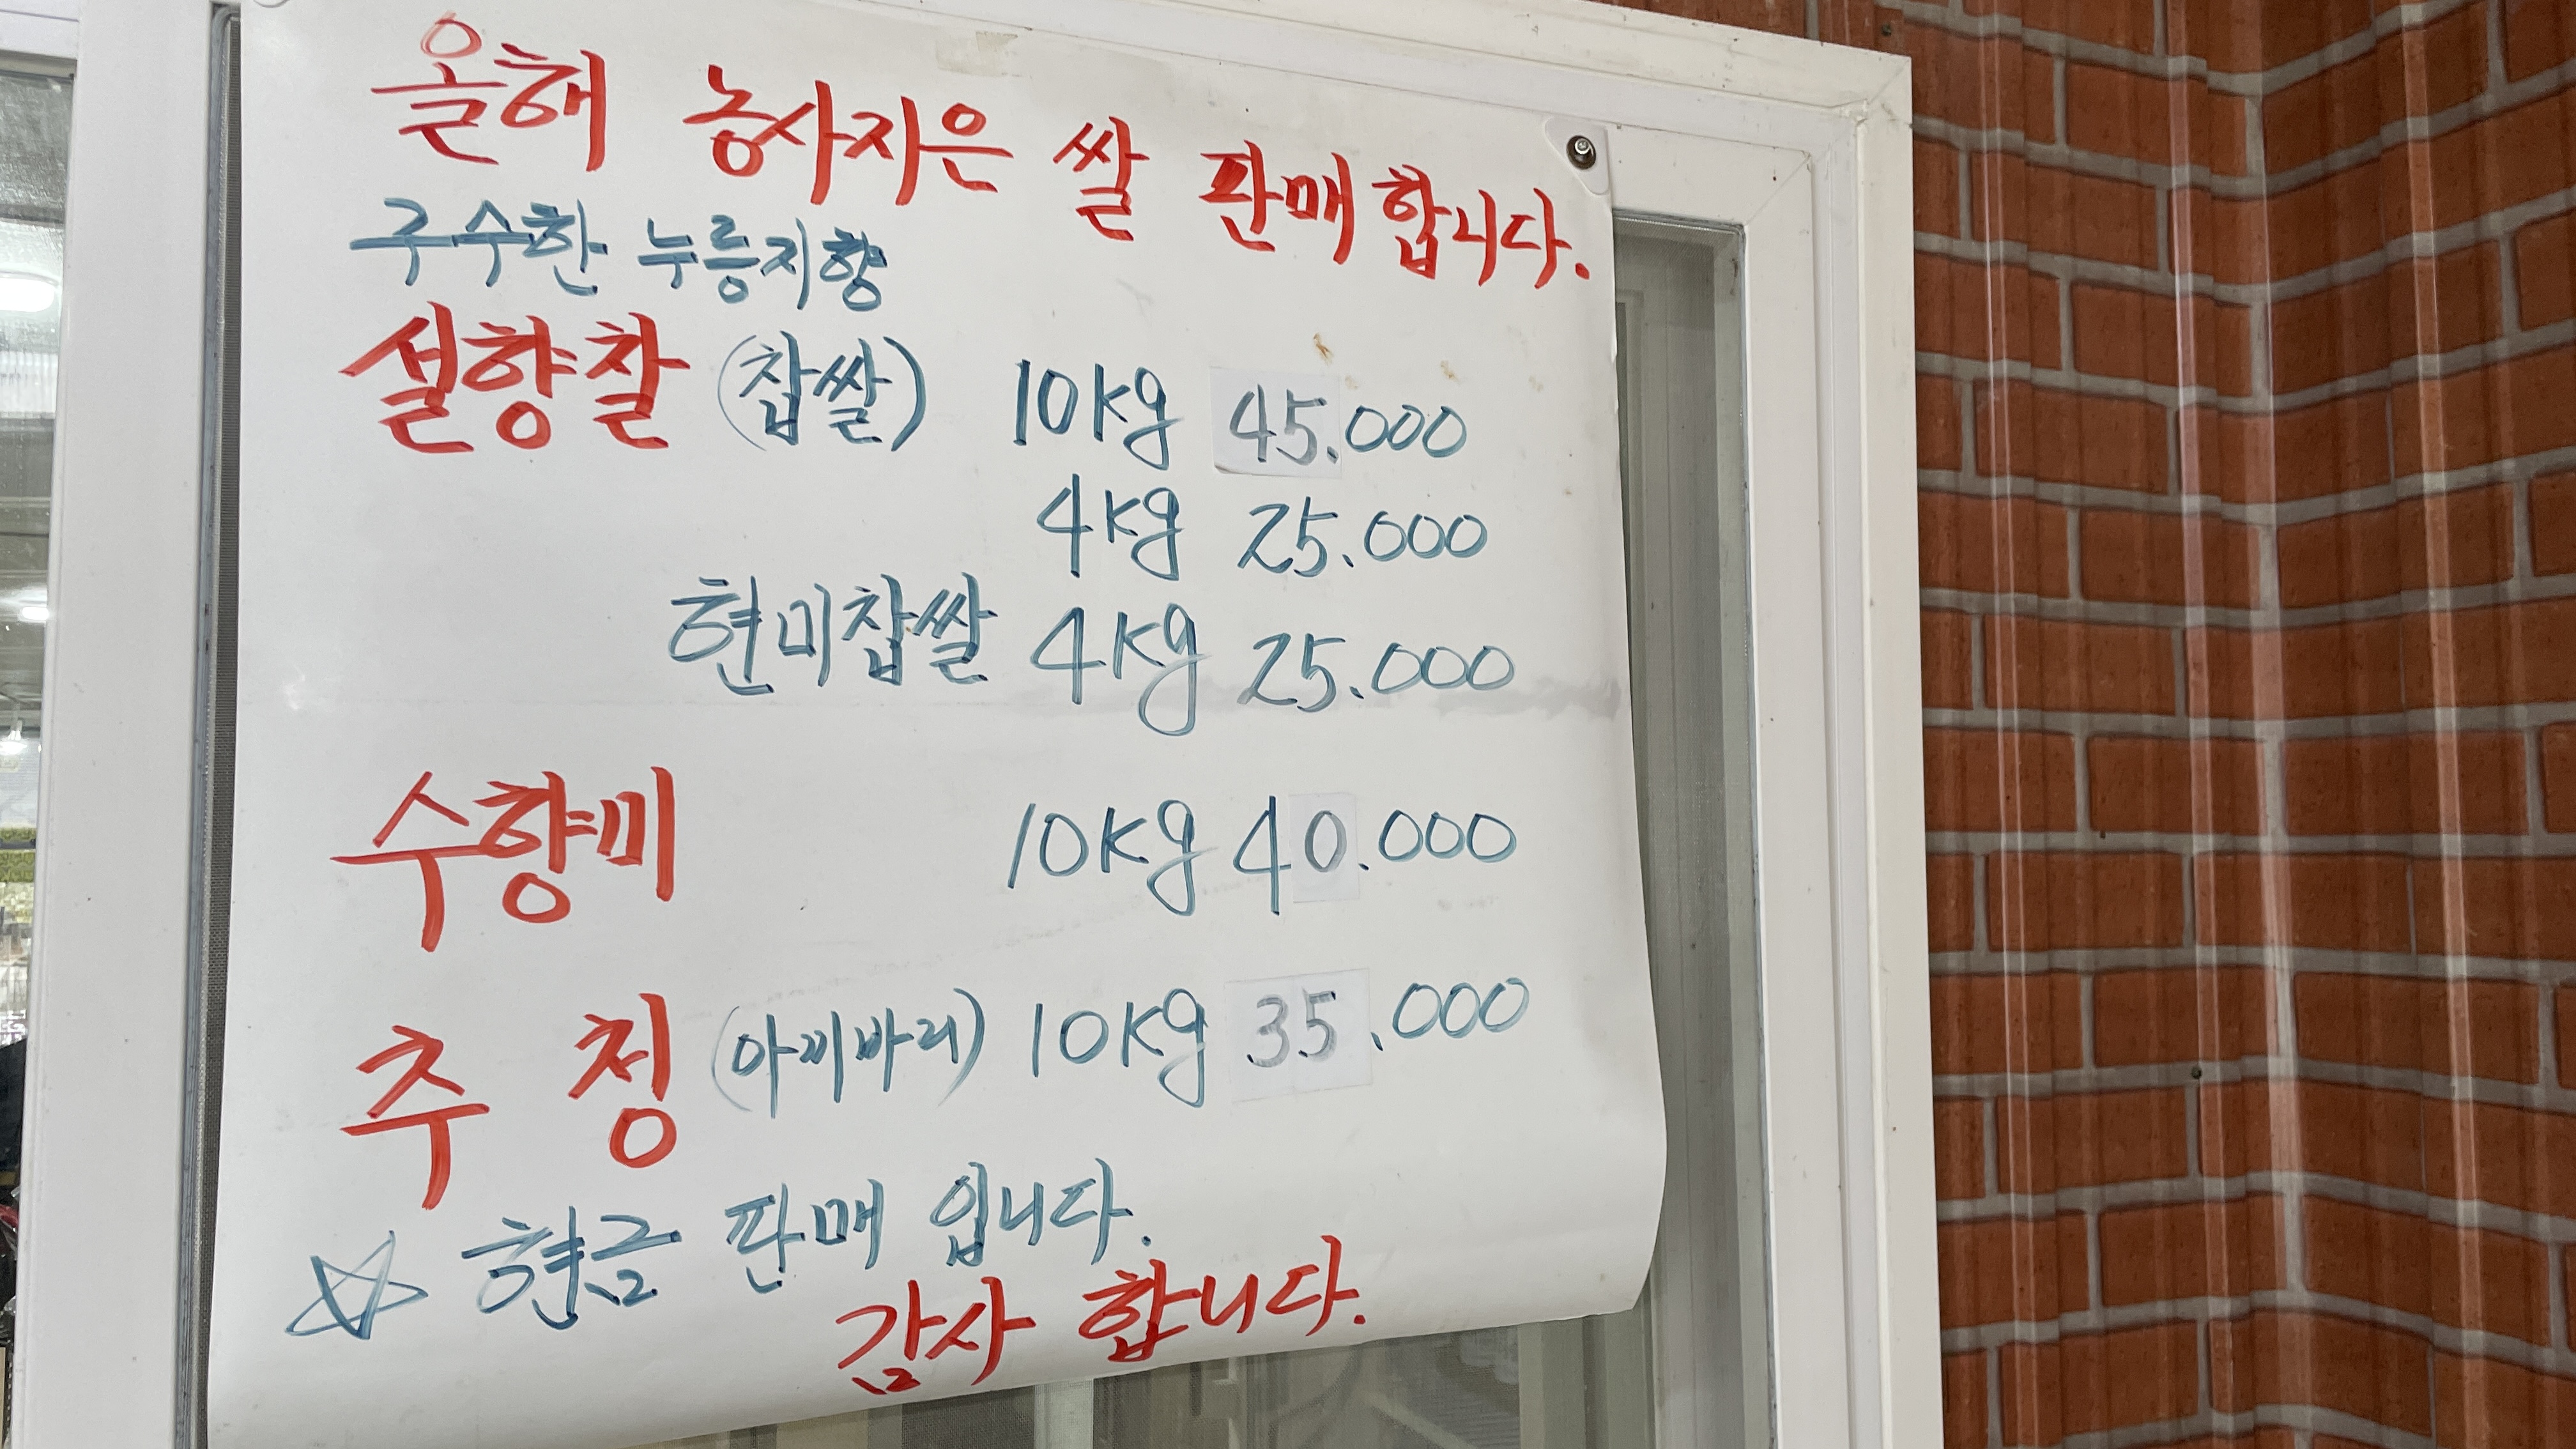 올해 농사지은 쌀 판매합니다.
구수한 누릉지향
설향찰 (찹쌀) 10kg 45.000
4kg 25.000
현미찹쌀 4kg 25.000
수향미 10kg 40.000
추청 (아끼바리) 10kg 35.000
☆ 현금 판매 입니다.
감사 합니다.